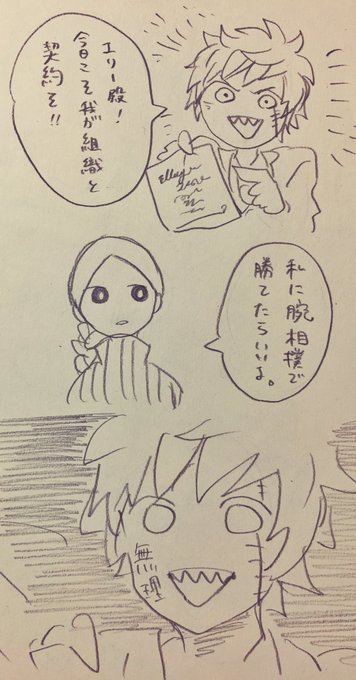 エリー殿!
今日こそ我が組織と
契約を!!
私に腕相撲で
勝てたらいいよ。
無理